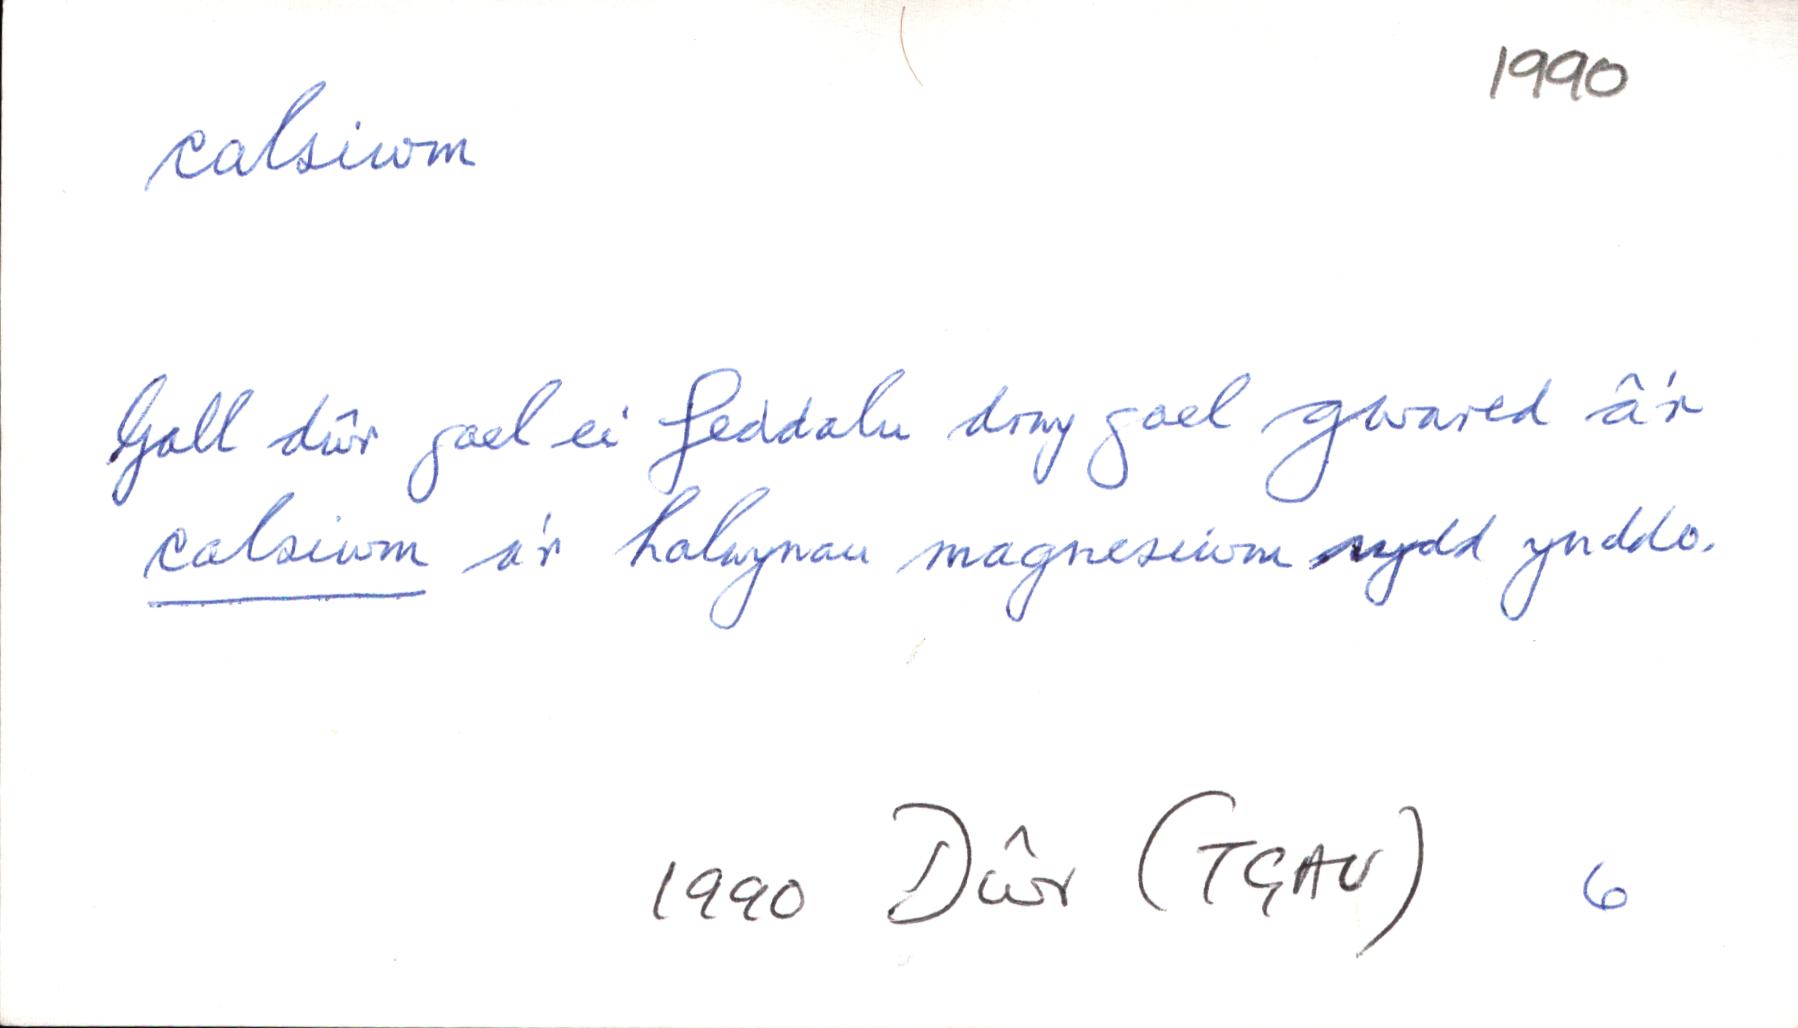 1990
calsiwm
Gall dŵr gael ei feddalu drwy gael gwared â'r
calsiwm a'r halwynau magnesiwm sydd ynddo.
1990 Dŵr (TGAU) 6